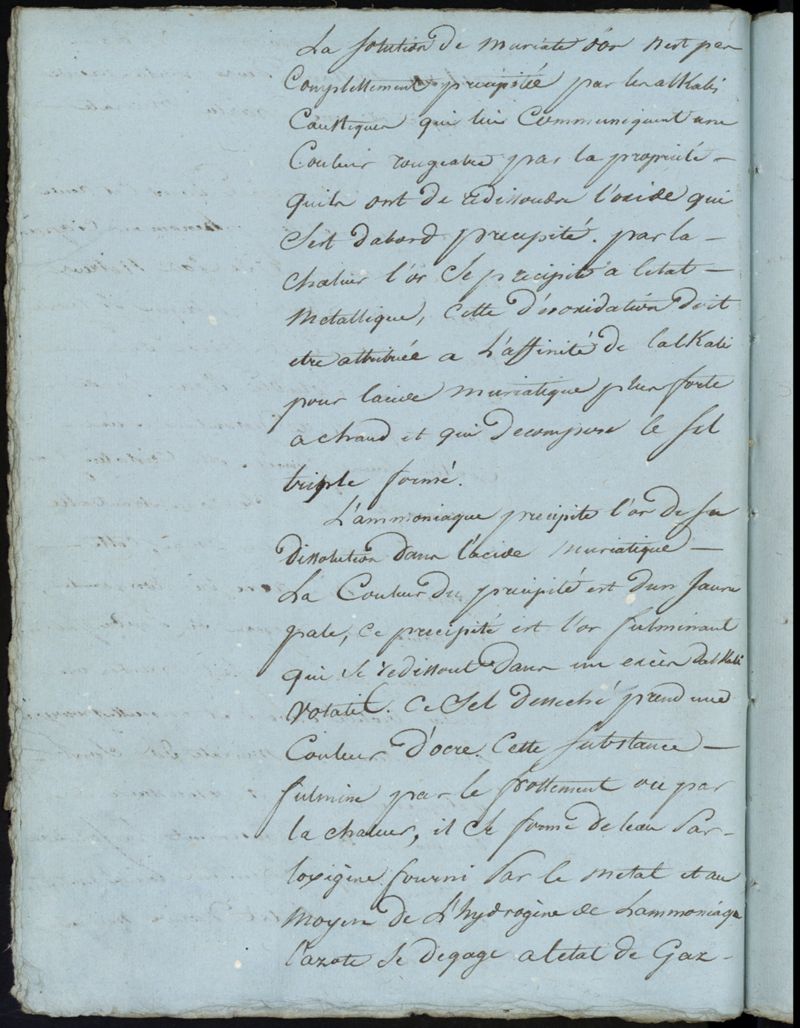 La solution de muriate d'or n'est pas
Complettement precipitée par les alkalis
Caustiques qui lui Communiquent une
Couleur rougeatre par la propriété –
quils ont de redissoudre l'oxide qui
s'est dabord precipité. par la –
chaleur l'or se precipite a letat –
Metallique, Cette désoxidation doit
etre attribuée a L'affinité de lalkali
pour lacide muriatique plus forte
a chaud et qui decompose le sel
triple formé.
L'ammoniaque precipite l'or de sa
dissolution dans lacide muriatique –
La Couleur du precipité est dun jaune
pale, ce precipité est l'or fulminant
qui se redissout dans un excès dalkali
volatil. Ce Sel desseché prend une
Couleur d'ocre. Cette substance –
fulmine par le frottement ou par
la chaleur, il se forme de leau par
loxigène fourni par le metal et au
moyen de L'hydrogène de Lammoniaque
l'azote se degage a letat de Gaz –